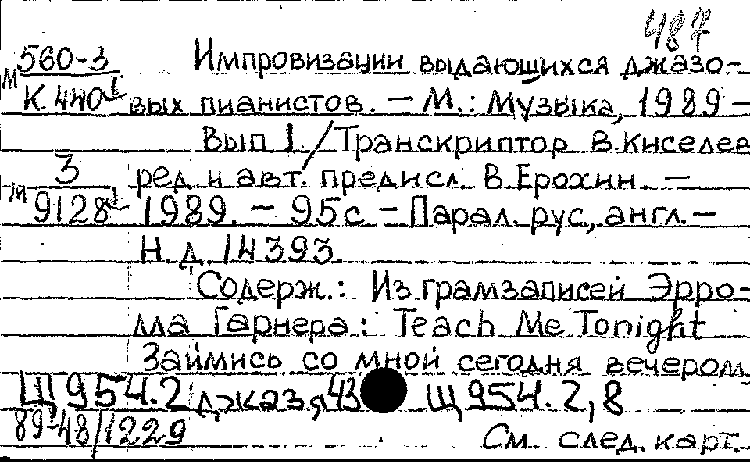 487
560-3 Импровизации выдающихся джазо-
М К 440 вых пианистов. — М.: Музыка, 1989 —
Вып 1. / Транскриптор В. Киселев
3 ред и авт. предисл. В. Ерохин. —
М 9128 1989. — 95 с — Парал. рус, англ. —
Н. д. 14393.
Содерж.: Из грамзаписей Эрро-
лла Гарнера: Teach Me Tonight
Займись со мной сегодня вечером
Щ 954.2 джаз я 43 Щ 954.2,8
89-48/1229
См. след. карт.